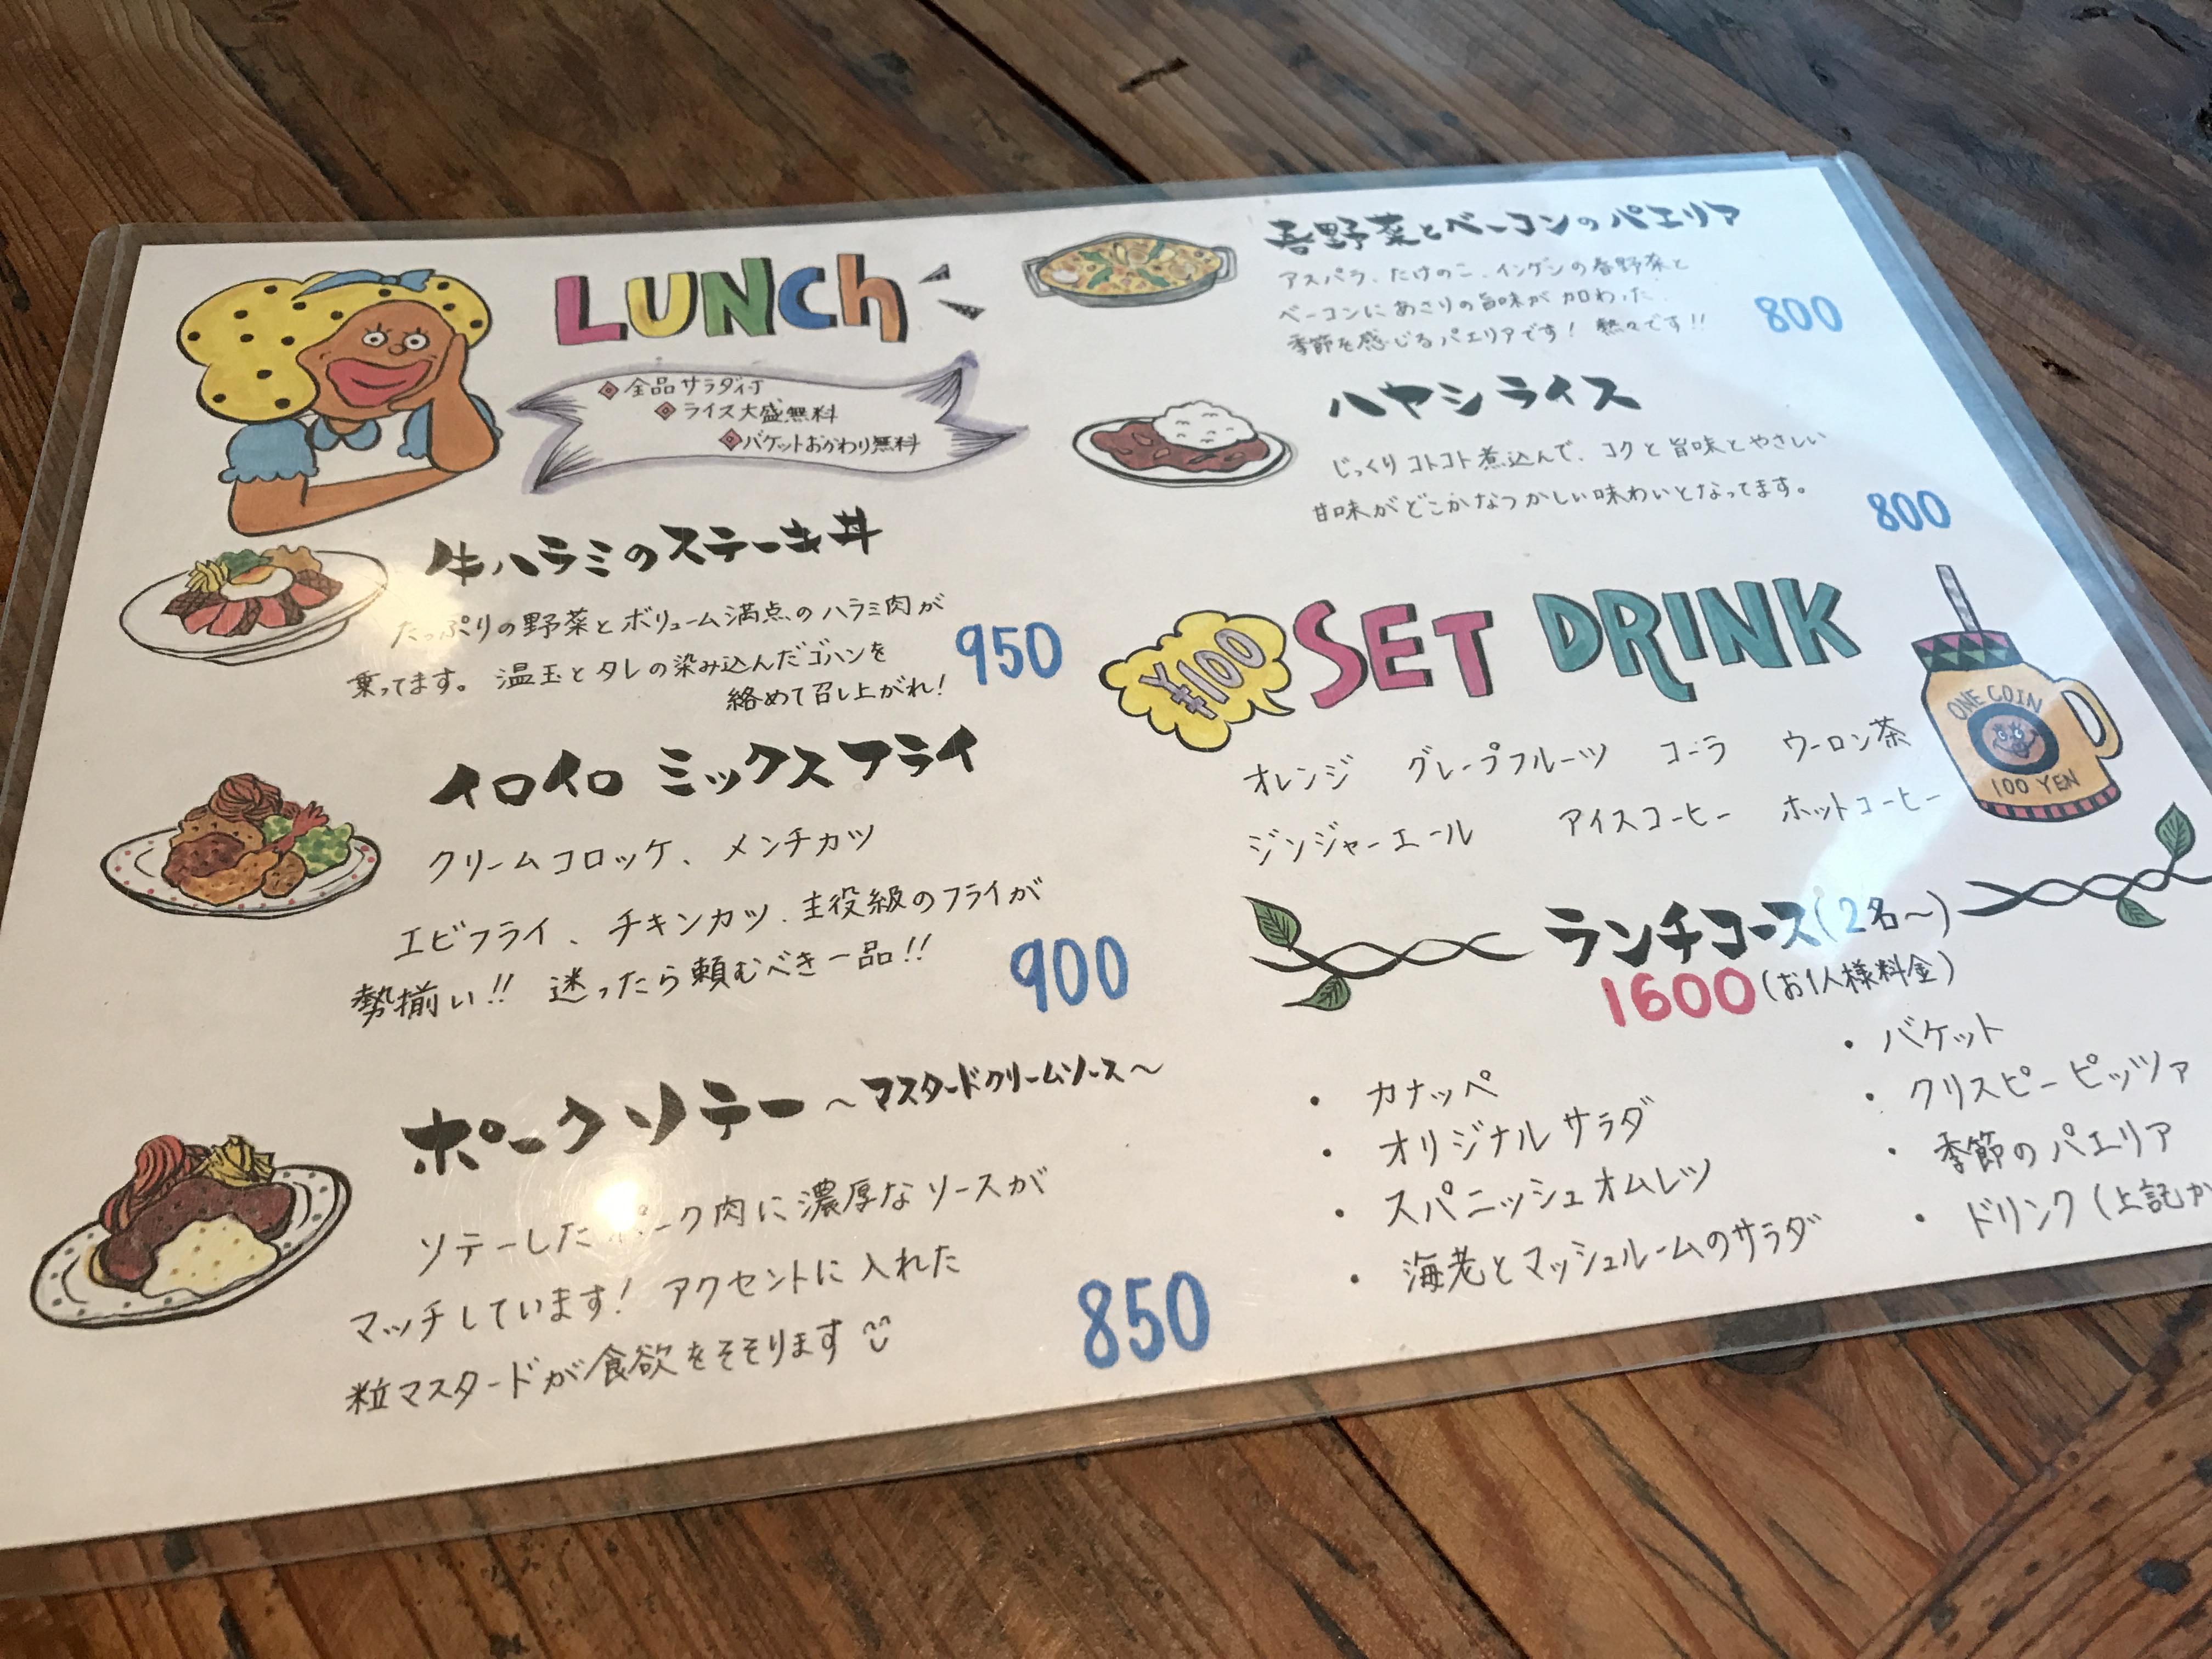 LUNCh
全品サラダ付
ライス大盛無料
バケットおかわり無料
牛ハラミのステーキ丼
たっぷりの野菜とボリューム満点のハラミ肉が
乗ってます。温玉とタレの染み込んだゴハンを
絡めて召し上がれ!
950
イロイロ ミックスフライ
クリームコロッケ、メンチカツ
エビフライ、チキンカツ、主役級のフライが
勢揃い!! 迷ったら頼むべき一品!!
900
ポークソテー 〜マスタードクリームソース〜
ソテーしたポーク肉に濃厚なソースが
マッチしています! アクセントに入れた
粒マスタードが食欲をそそります
850
春野菜とベーコンのパエリア
アスパラ、たけのこ、インゲンの春野菜と
ベーコンにあさりの旨味が加わった、
季節を感じるパエリアです! 熱々です!!
800
ハヤシライス
じっくりコトコト煮込んで、コクと旨味とやさしい
甘味がどこかなつかしい味わいとなってます。
800
¥100
SET DRINK
オレンジ グレープフルーツ コーラ ウーロン茶
ジンジャーエール アイスコーヒー ホットコーヒー
ONE COIN
100 YEN
ランチコース(2名〜)
1600(お1人様料金)
・カナッペ
・オリジナルサラダ
・スパニッシュオムレツ
・海老とマッシュルームのサラダ
・バケット
・クリスピーピッツァ
・季節のパエリア
・ドリンク(上記か